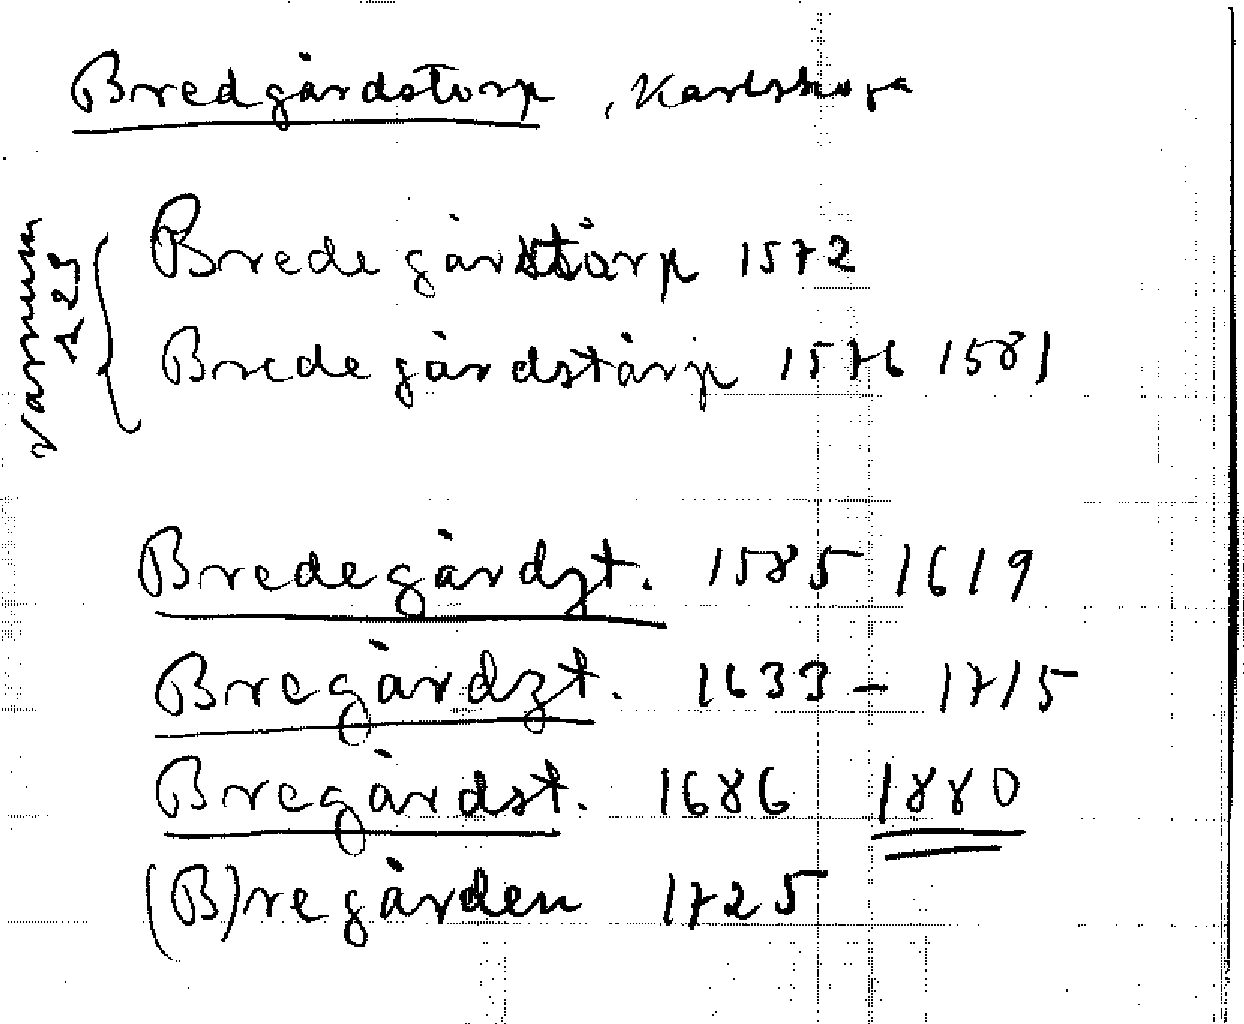 Bredgårdstorp, Karlskoga
Varnum
s 29
Bredegårdstorp 1572
Bredegårdstårp 1576 1581
Bredegårdzt. 1585 1619
Bregårdzt. 1633 – 1715
Bregårdst. 1686 1880
(B)regården 1725